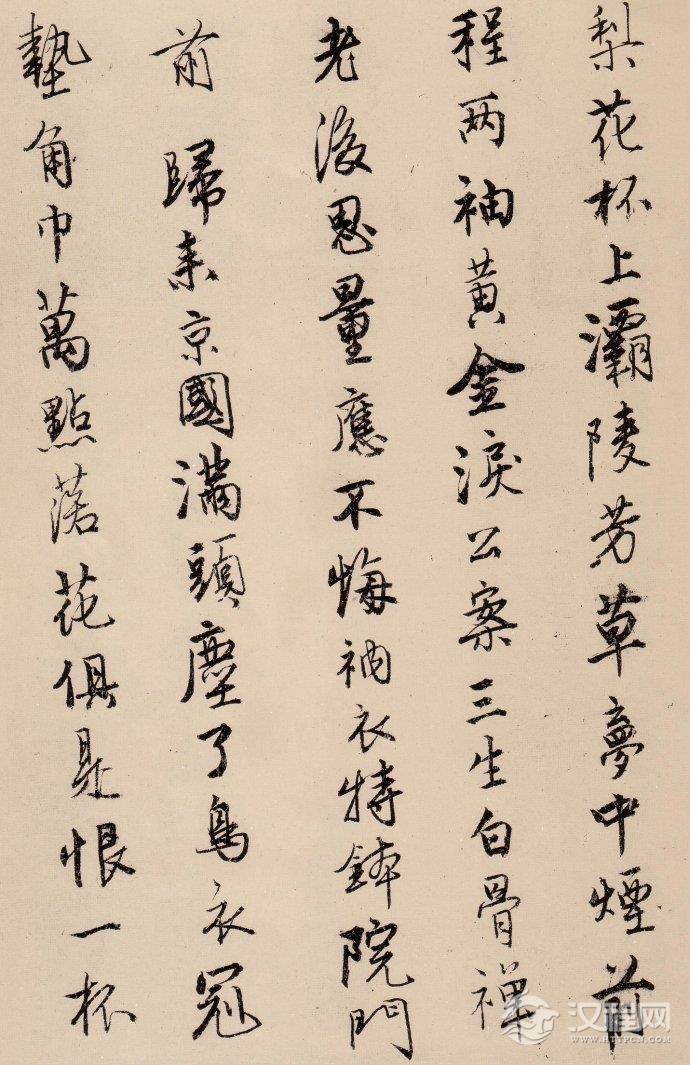 梨花杯上灞陵芳草夢中煙前
程两袖黄金淚公案三生白骨禅
老後思量應不悔衲衣持鉢院門
前 歸来京國滿頭塵了鳥衣冠
墊角巾萬點落花俱是恨一杯
汉程网
WWW.HTTPCN.COM